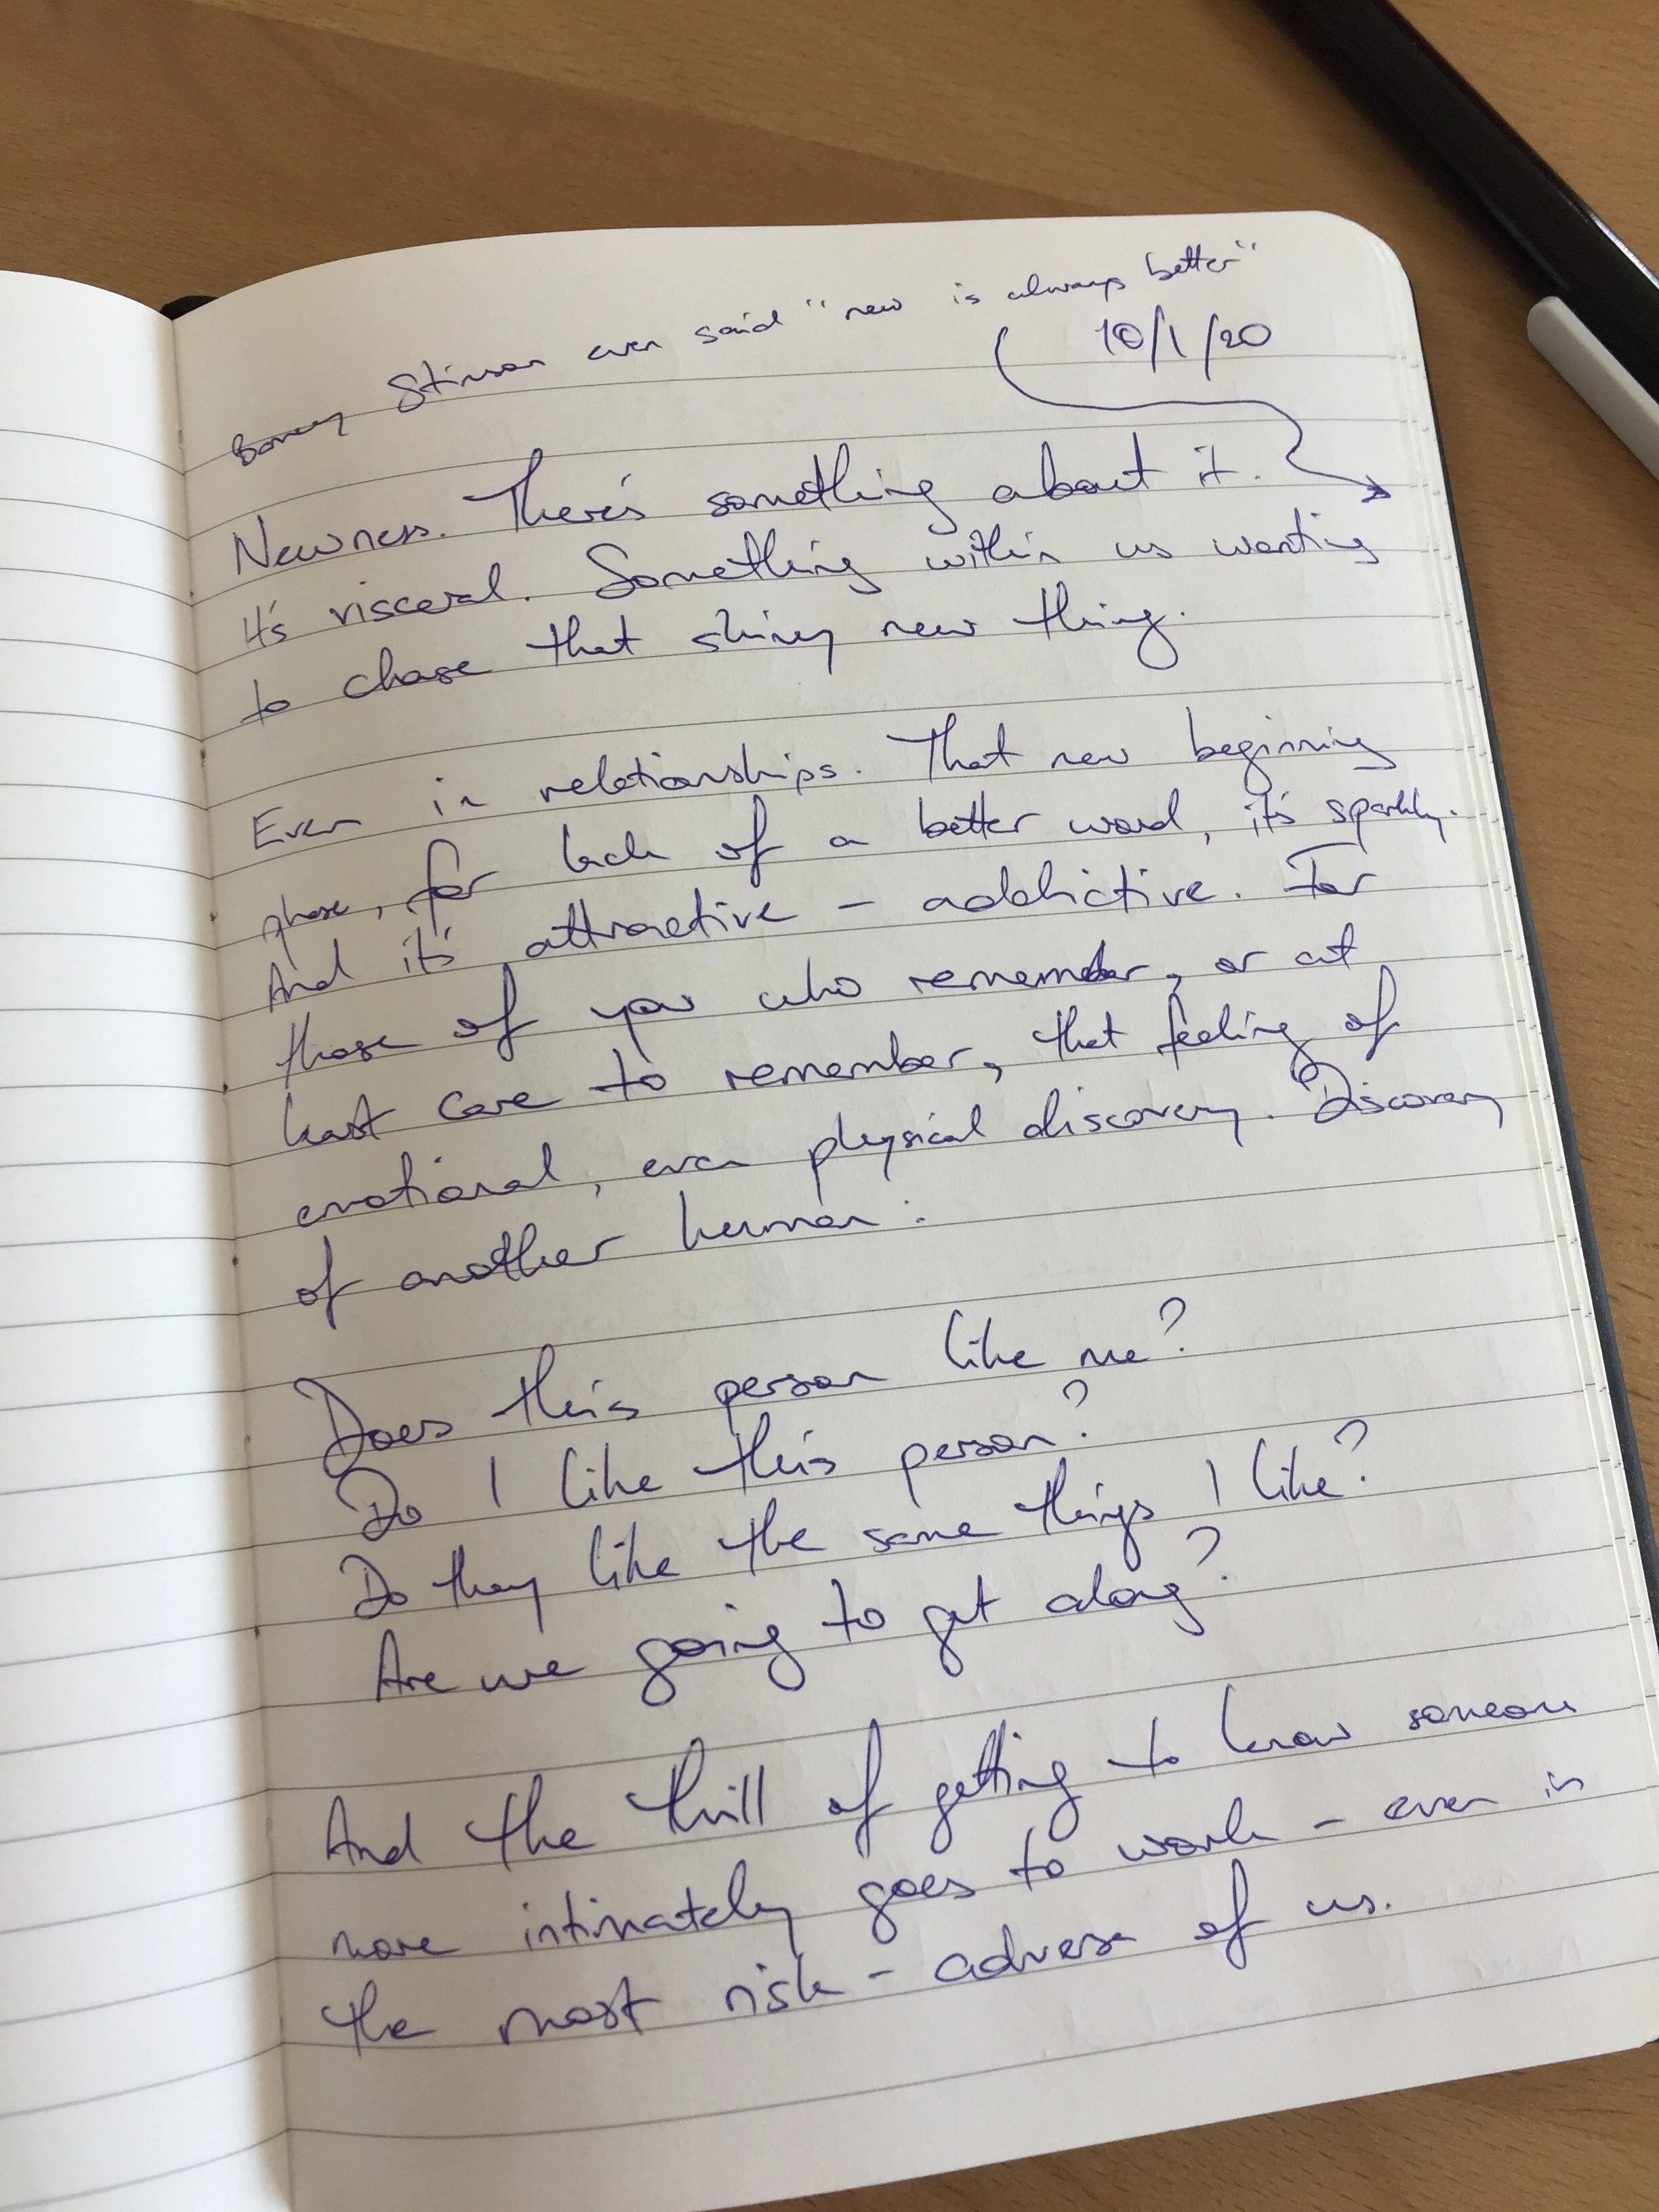 Barney Stinson even said "new is always better"
10/1/20
Newness. There's something about it.
It's visceral. Something within us wanting
to chase that shiny new thing.
Even in relationships. That new beginning
phase, for lack of a better word, it's sparkly.
And it's attractive - addictive. For
those of you who remember, or at
least care to remember, that feeling of
emotional, even physical discovery. Discovery
of another human:
Does this person like me?
Do I like this person?
Do they like the same things I like?
Are we going to get along?
And the thrill of getting to know someone
more intimately goes to work - even in
the most risk-adverse of us.